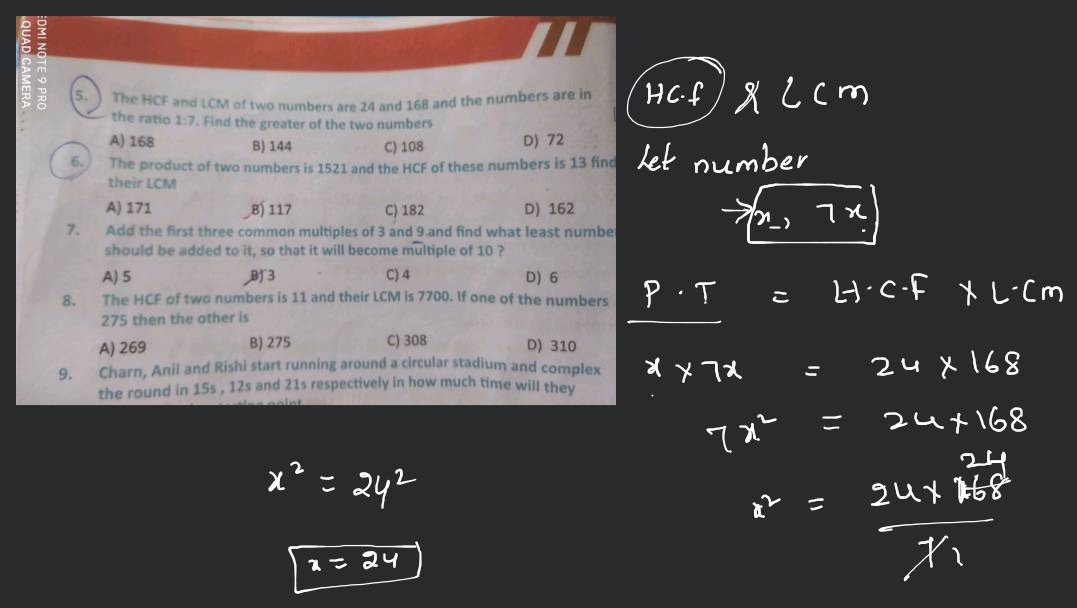 EDMI NOTE 9 PRO
QUAD CAMERA
5. The HCF and LCM of two numbers are 24 and 168 and the numbers are in
the ratio 1:7. Find the greater of the two numbers
A) 168 B) 144 C) 108 D) 72
6. The product of two numbers is 1521 and the HCF of these numbers is 13 find
their LCM
A) 171 B) 117 C) 182 D) 162
7. Add the first three common multiples of 3 and 9 and find what least numbe
should be added to it, so that it will become multiple of 10 ?
A) 5 B) 3 C) 4 D) 6
8. The HCF of two numbers is 11 and their LCM is 7700. If one of the numbers
275 then the other is
A) 269 B) 275 C) 308 D) 310
9. Charn, Anil and Rishi start running around a circular stadium and complex
the round in 15s , 12s and 21s respectively in how much time will they
H.C.f & L C m
Let number
→ x, 7x
P.T = H.C.F × L.Cm
x × 7x = 24 × 168
7x² = 24 × 168
24
x² = 24 × 168
7
x² = 24²
x = 24